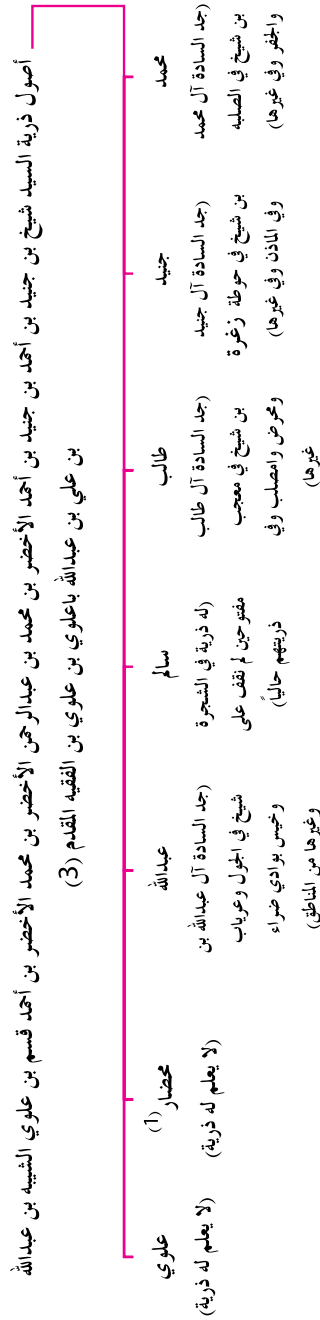 أصول ذرية السيد شيخ بن جنيد بن أحمد بن جنيد بن أحمد الأخضر بن محمد بن عبدالرحمن الأخضر بن محمد الأخضر بن أحمد قسم بن علوي الشيبه بن عبدالله
بن علي بن عبدالله باعلوي بن علوي بن الفقيه المقدم (3)
محمد
(جد السادة آل محمد
بن شيخ في الصلبه
والجفر وفي غيرها)
جنيد
(جد السادة آل جنيد
بن شيخ في حوطة زغرة
وفي الماذن وفي غيرها)
طالب
(جد السادة آل طالب
بن شيخ في معجب
ومحرض وامصلب وفي
غيرها)
سالم
(له ذرية في الشجرة
مفتوحين لم نقف على
ذريتهم حالياً)
عبدالله
(جد السادة آل عبدالله بن
شيخ في الجول وعرباب
وخيس بوادي ضراء
وغيرها من المناطق)
محضار (1)
(لا يعلم له ذرية)
علوي
(لا يعلم له ذرية)